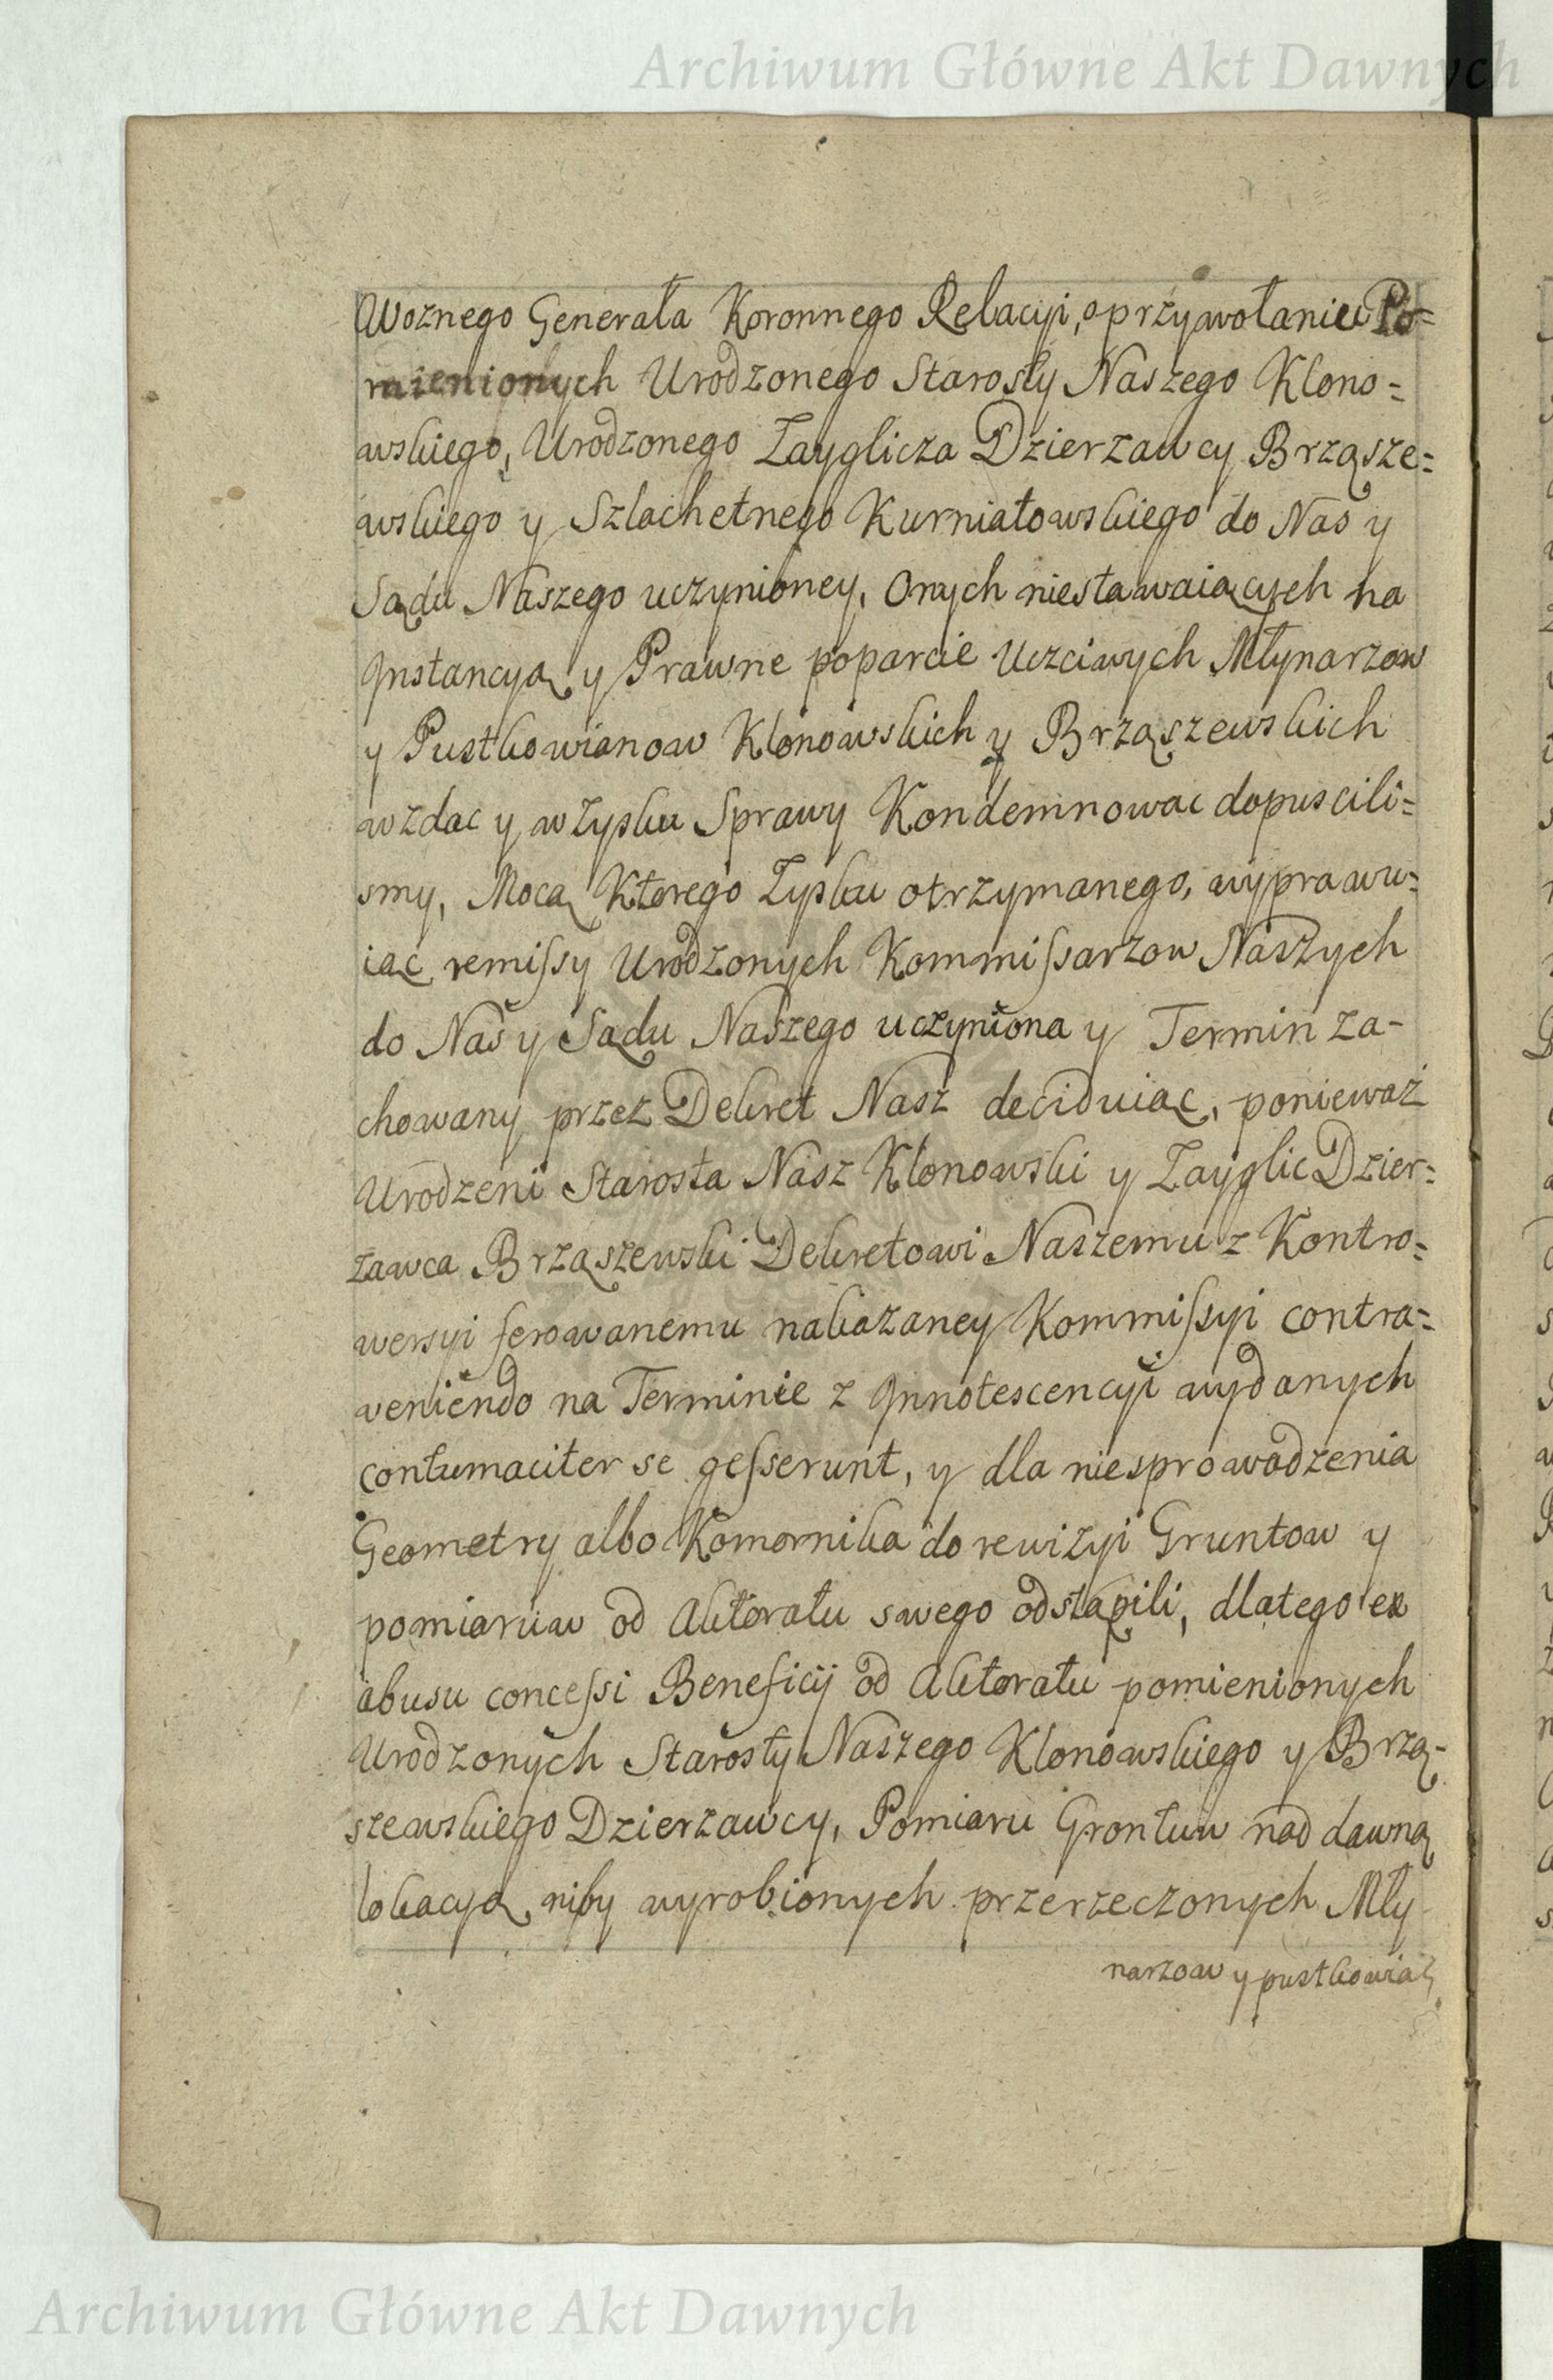 Archiwum Główne Akt Dawnych
Woznego Generała Koronnego Relacyi, o przywołaniu Po=
mienionych Urodzonego Starosty Naszego Klono=
wskiego, Urodzonego Zayglicza Dzierzawcy Brząsze=
wskiego y Szlachetnego Kurniatowskiego do Nas y
Sądu Naszego uczynioney, Onych niestawaiących na
Instancyą y Prawne poparcie Uczciwych Młynarzow
y Pustkowianow Klonowskich y Brząszewskich
wzdac y w Zysku Sprawy Kondemnowac dopuscili=
smy, Mocą Ktorego Zysku otrzymanego, wyprawu=
iąc remissy Urodzonych Kommissarzow Naszych
do Nas y Sądu Naszego uczyniona y Termin za-
chowany przez Dekret Nasz deciduiąc, ponieważ
Urodzeni Starosta Nasz Klonowski y Zayglic Dzier=
zawca Brząszewski Dekretowi Naszemu z Kontro=
wersyi ferowanemu nakazaney Kommissyi contra=
veniendo na Terminie z Innotescencyi wydanych
contumaciter se gesserunt, y dla niesprowadzenia
Geometry albo Komornika do rewizyi Gruntow y
pomiaruw od Aktoratu swego odstąpili, dlatego ex
abusu concessi Beneficij od Aktoratu pomienionych
Urodzonych Starosty Naszego Klonowskiego y Brzą-
szewskiego Dzierzawcy, Pomiaru Grontuw nad dawną
lokacyą niby wyrobionych przerzeczonych Mły
narzow y pustkowia
Archiwum Główne Akt Dawnych